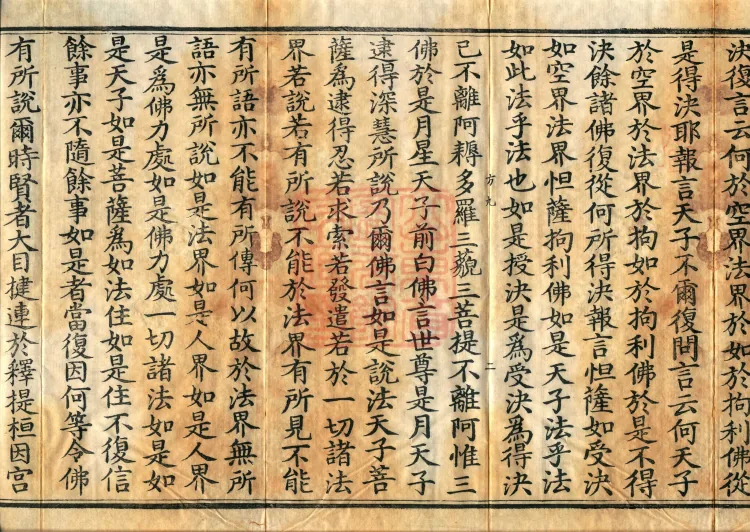 決復言云何於空界法界於如於拘利佛從
是得決耶報言天子不爾復問言云何天子
於空界於法界於拘如於拘利佛於是不得
決餘諸佛復從何所得決報言怛薩如受決
如空界法界怛薩拘利佛如是天子法乎法
如此法乎法也如是授決是為受決為得決
已不離阿耨多羅三藐三菩提不離阿惟三
佛於是月星天子前白佛言世尊是月天子
逮得深慧所說乃爾佛言如是說法天子菩
薩為逮得忍若求索若發遣若於一切諸法
界若說若有所說不能於法界有所見不能
有所語亦不能有所傳何以故於法界無所
語亦無所說如是法界如是人界如是人界
是為佛力處如是佛力處一切諸法如是如
是天子如是菩薩為如法住如是住不復信
餘事亦不隨餘事如是者當復因何等令佛
有所說爾時賢者大目揵連於釋提桓因宮
方九
二